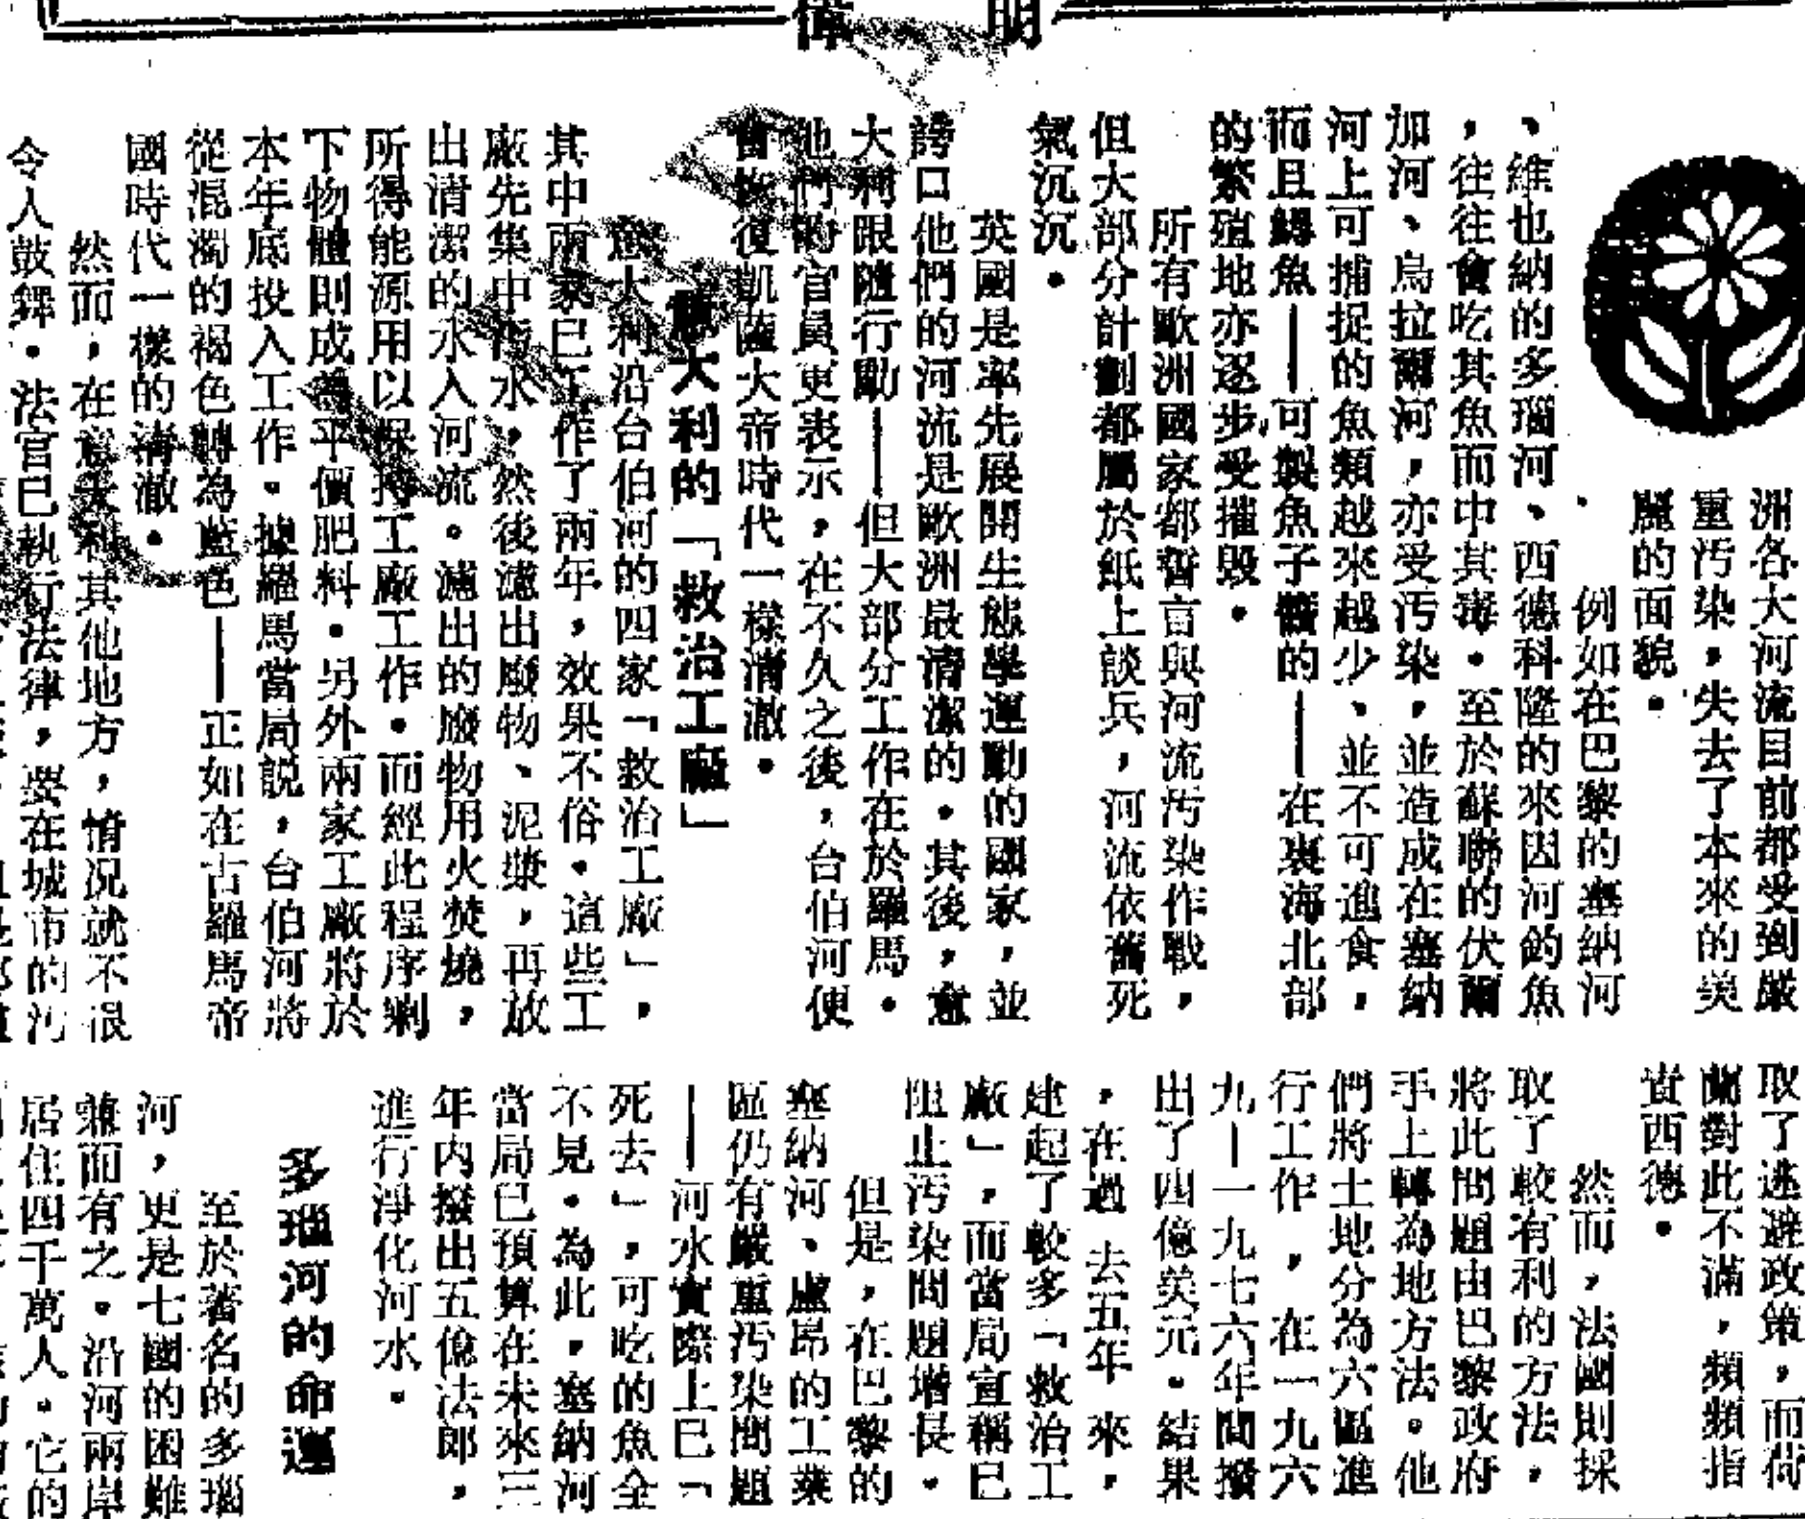 明
偉
洲各大河流目前都受到嚴
重汚染，失去了本來的美
麗的面貌。
例如在巴黎的塞納河
、維也納的多瑙河、西德科隆的來因河釣魚
，往往會吃其魚而中其毒。至於蘇聯的伏爾
加河、烏拉爾河，亦受汚染，並造成在塞納
河上可捕捉的魚類越來越少、並不可進食，
而且鱘魚——可製魚子醬的——在裏海北部
的繁殖地亦逐步受摧毀。
所有歐洲國家都誓言與河流汚染作戰，
但大部分計劃都屬於紙上談兵，河流依舊死
氣沉沉。
英國是率先展開生態學運動的國家，並
誇口他們的河流是歐洲最清潔的。其後，意
大利跟隨行動——但大部分工作在於羅馬。
他們的官員更表示，在不久之後，台伯河便
會恢復凱薩大帝時代一樣清澈。
意大利的「救治工廠」
意大利沿台伯河的四家「救治工廠」，
其中兩家已工作了兩年，效果不俗。這些工
廠先集中汚水，然後濾出廢物、泥漿，再放
出清潔的水入河流。濾出的廢物用火焚燒，
所得能源用以保持工廠工作。而經此程序剩
下物體則成為平價肥料。另外兩家工廠將於
本年底投入工作。據羅馬當局説，台伯河將
從混濁的褐色轉為藍色——正如在古羅馬帝
國時代一樣的清澈。
然而，在意大利其他地方，情况就不很
令人鼓舞。法官已執行法律，要在城市的汚
取了逃避政策，而荷
蘭對此不滿，頻頻指
責西德。
然而，法國則採
取了較有利的方法，
將此問題由巴黎政府
手上轉為地方法。他
們將土地分為六區進
行工作，在一九六
九—一九七六年間撥
出了四億美元。結果
，在過去五年來，
建起了較多「救治工
廠」，而當局宣稱已
阻止汚染問題增長。
但是，在巴黎的
塞納河、盧昂的工業
區仍有嚴重汚染問題
——河水實際上已「
死去」，可吃的魚全
不見。為此，塞納河
當局已預算在未來三
年内撥出五億法郎，
進行淨化河水。
多瑙河的命運
至於著名的多瑙
河，更是七國的困難
兼而有之。沿河兩岸
居住四千萬人。它的